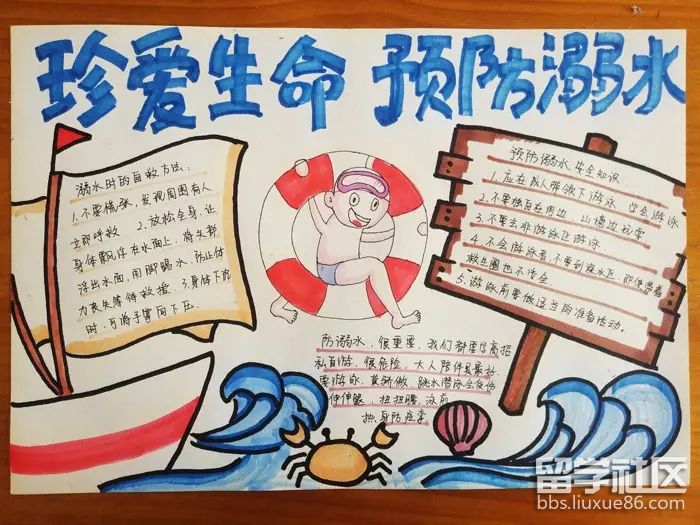 珍爱生命 预防溺水
溺水时的自救方法:
1.不要慌张,发现周围有人
立即呼救 2.放松全身,让
身体飘浮在水面上,将头部
浮出水面,用脚踢水,防止体
力丧失等待救援 3.身体下沉
时,可将手掌向下压。
预防溺水安全知识
1.应在成人带领下游泳 学会游泳
2.不要独自在周边 山塘边玩耍
3.不要去非游泳区游泳
4.不会游泳者,不要到深水区,即使带着
救生圈也不安全
5.游泳前要做适当的准备活动。
防溺水,很重要,我们都要学高招
私自游,很危险,大人陪伴是最好
要游泳,莫骄傲,跳水潜泳会受伤
伸伸腿,扭扭腰,泳前
热身防痉挛
留学社区
bbs.liuxue86.com